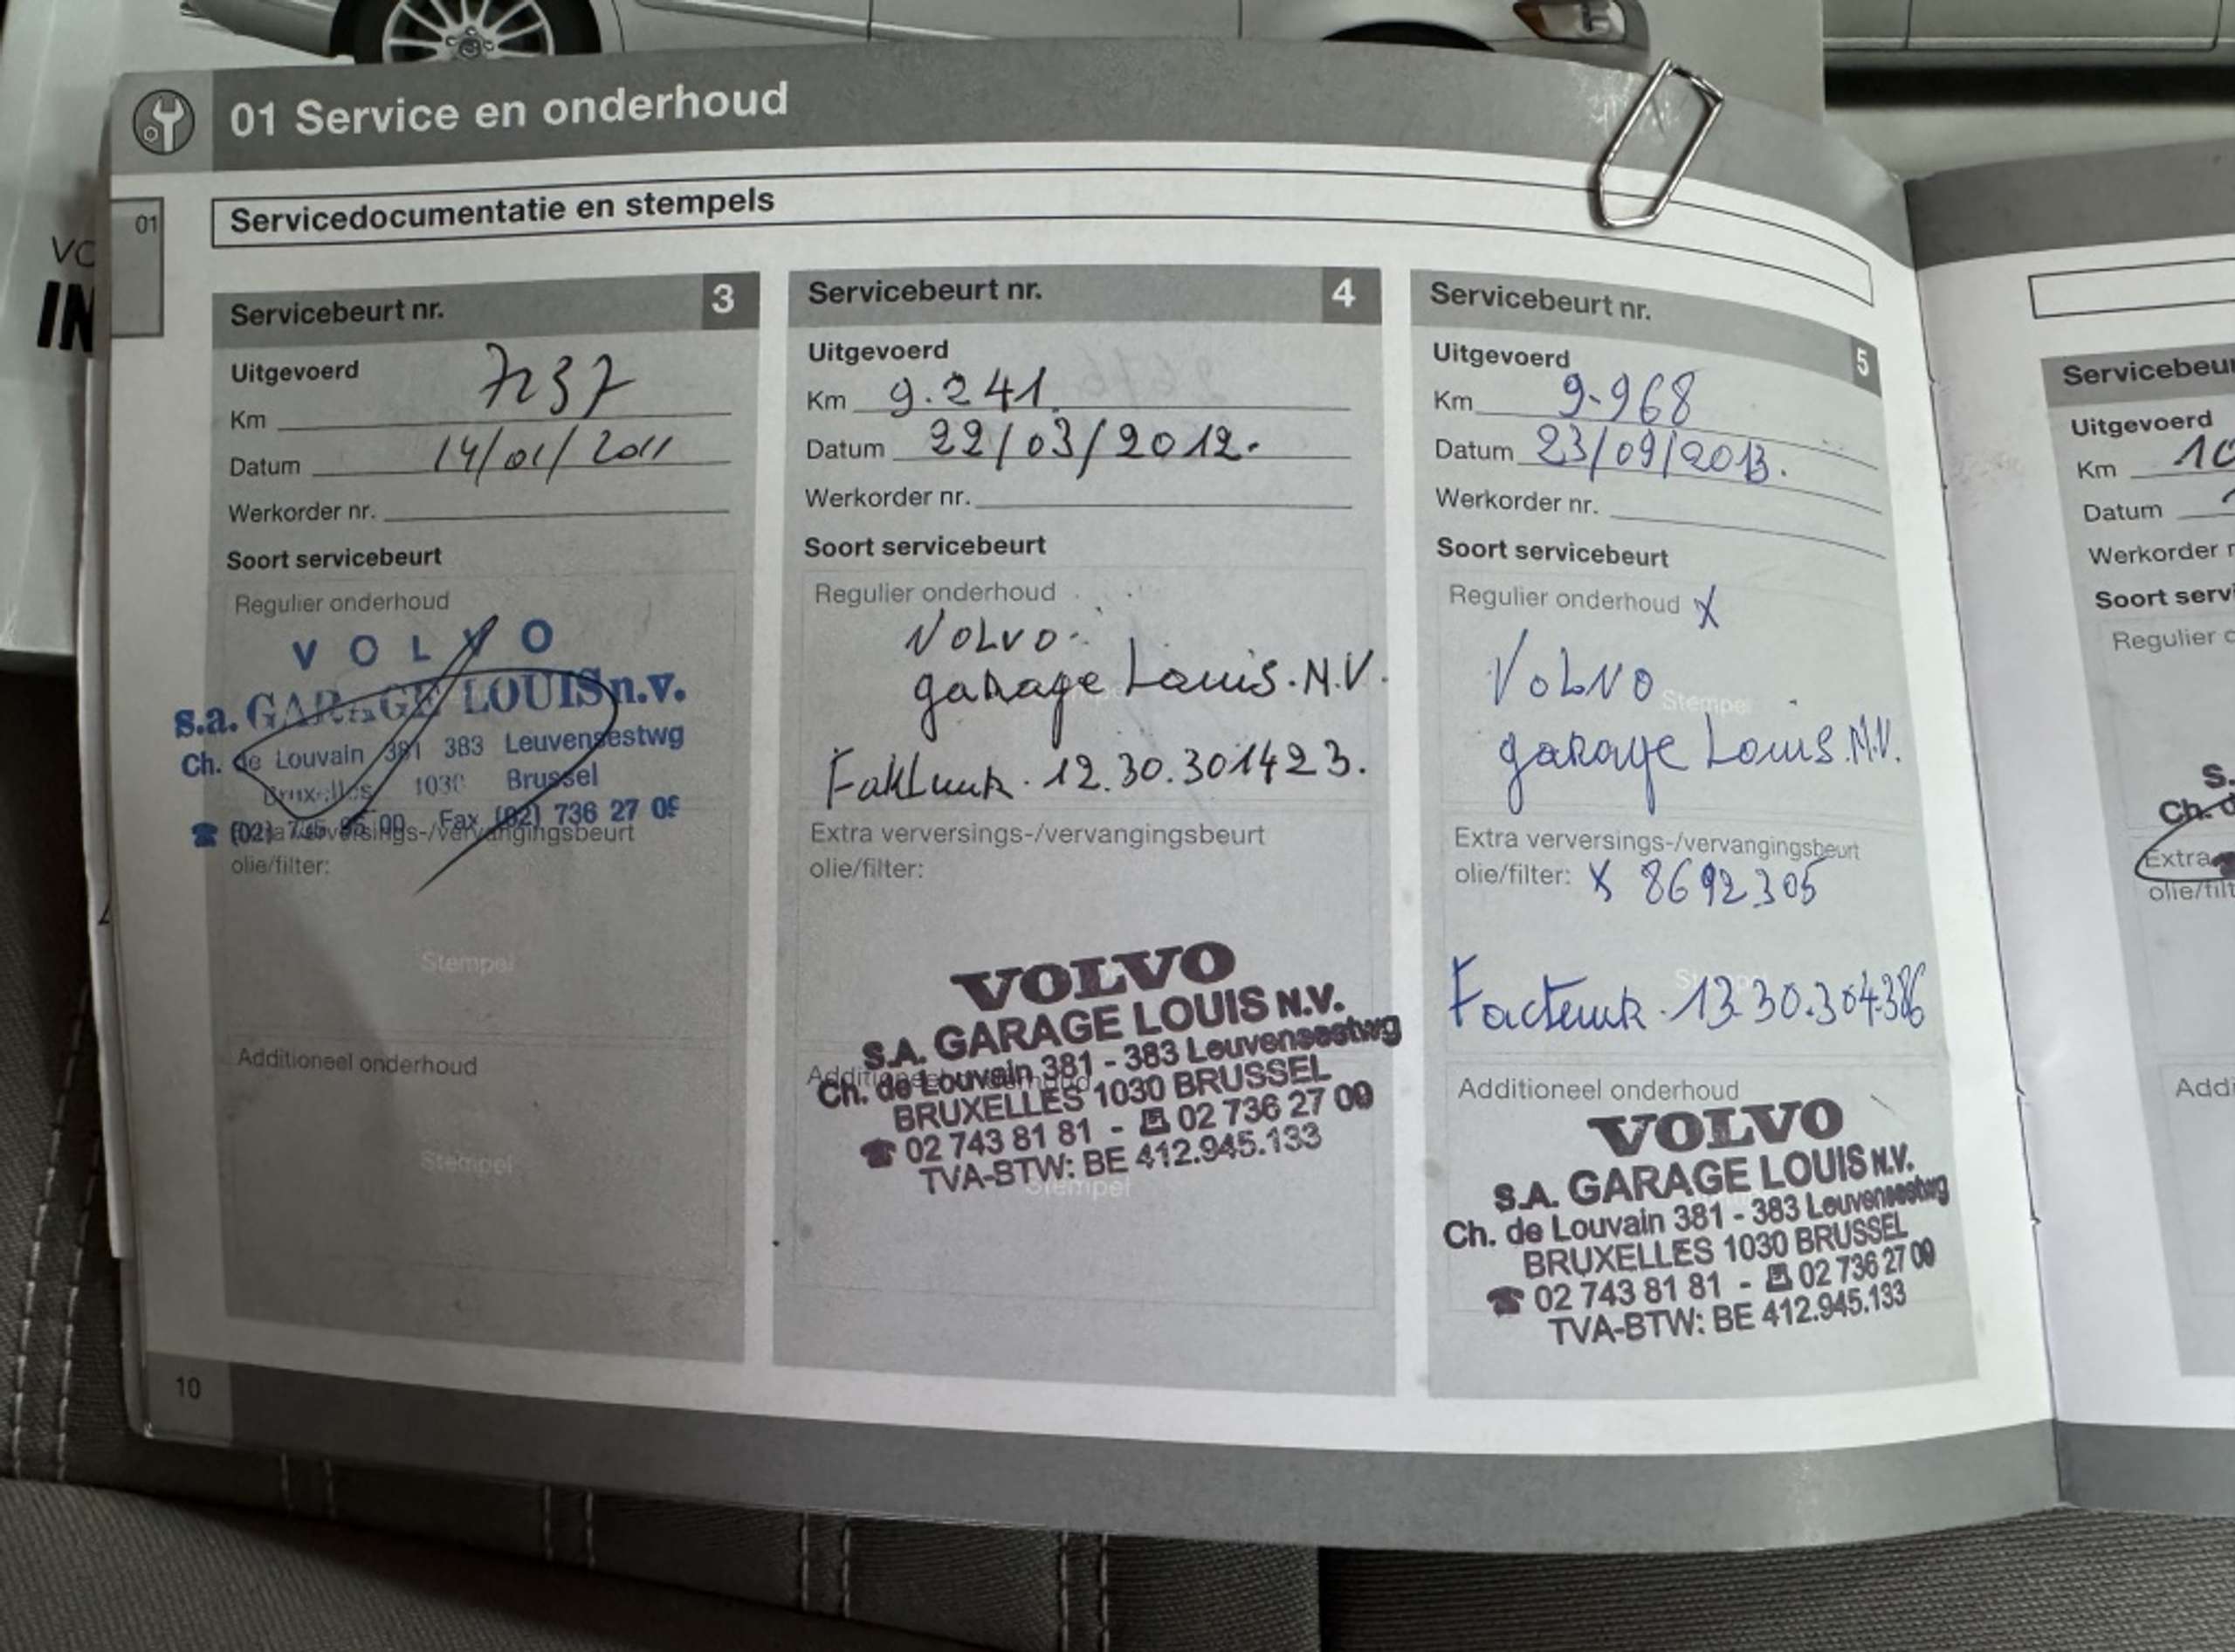 01 Service en onderhoud
01
Servicedocumentatie en stempels
VO
IN
Servicebeurt nr. 3
Uitgevoerd
Km 7237
Datum 14/01/2011
Werkorder nr.
Soort servicebeurt
Regulier onderhoud
VOLVO
s.a. GARAGE LOUIS n.v.
Ch. de Louvain 381 383 Leuvensestwg
Bruxelles 1030 Brussel
Fax (02) 736 27 09
Extra verversings-/vervangingsbeurt
olie/filter:
Stempel
Additioneel onderhoud
Stempel
Servicebeurt nr. 4
Uitgevoerd
Km 9.241
Datum 22/03/2012.
Werkorder nr.
Soort servicebeurt
Regulier onderhoud
VOLVO
garage Louis. N.V.
12.30.301423.
Extra verversings-/vervangingsbeurt
olie/filter:
VOLVO
S.A. GARAGE LOUIS N.V.
Additioneel onderhoud
Ch. de Louvain 381 - 383 Leuvensestwg
BRUXELLES 1030 BRUSSEL
02 743 81 81 - 02 736 27 09
TVA-BTW: BE 412.945.133
Stempel
Servicebeurt nr. 5
Uitgevoerd
Km 9.968
Datum 23/09/2013.
Werkorder nr.
Soort servicebeurt
Regulier onderhoud X
VOLVO
Stempel
garage Louis. N.V.
Extra verversings-/vervangingsbeurt
olie/filter: X 8692305
Facteur. 13.30.304386
Additioneel onderhoud
VOLVO
S.A. GARAGE LOUIS N.V.
Ch. de Louvain 381 - 383 Leuvensestwg
BRUXELLES 1030 BRUSSEL
02 743 81 81 - 02 736 27 09
TVA-BTW: BE 412.945.133
10
Servicebeu
Uitgevoerd
Km 10
Datum
Werkorder n
Soort servi
Regulier o
S.
Ch. d
Extra
olie/filt
Addi